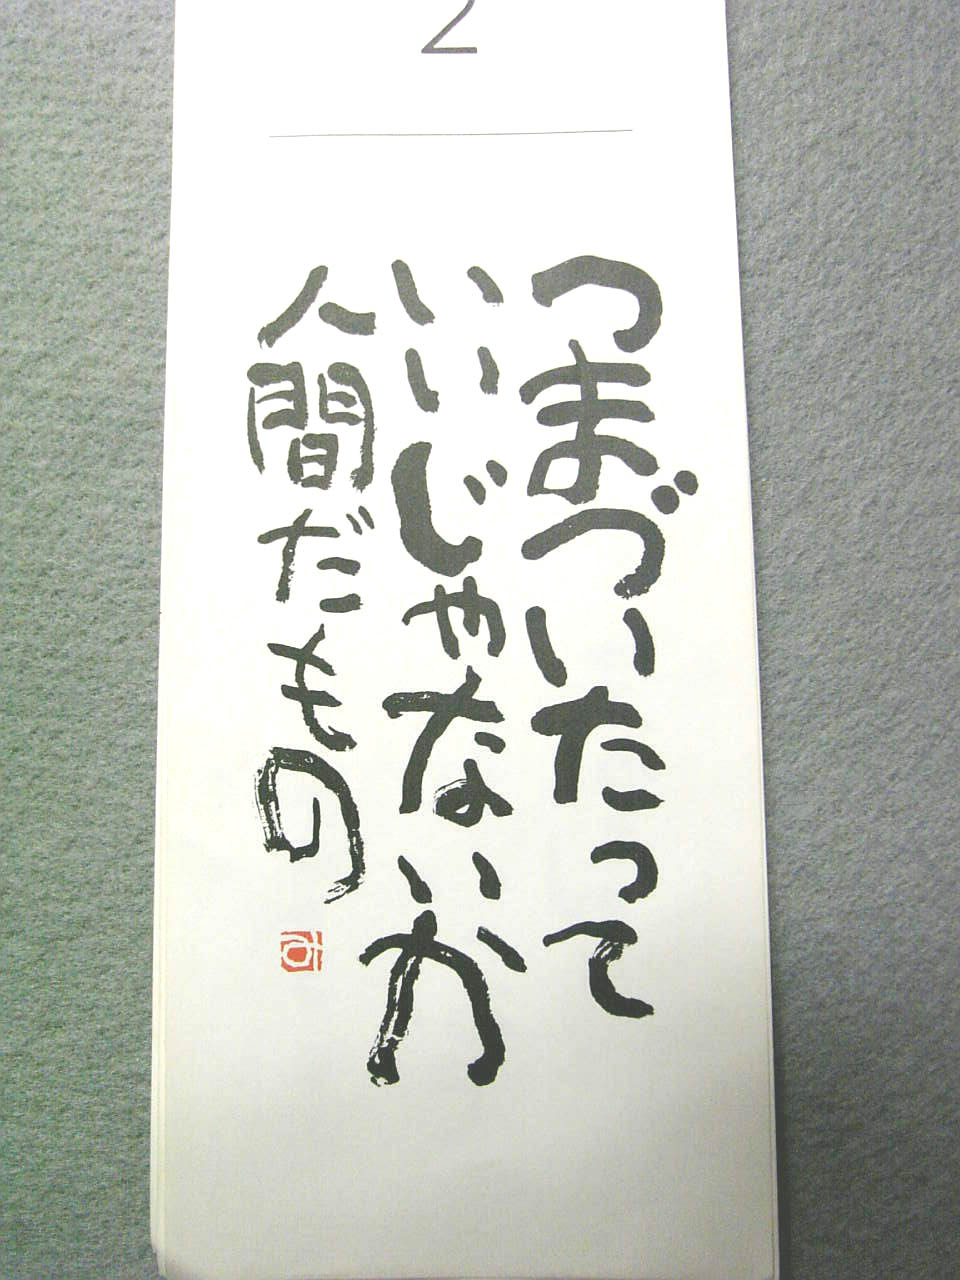 2
つまづいたって
いいじゃないか
人間だもの
み